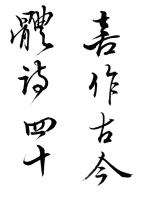 喜作古今
體詩四十